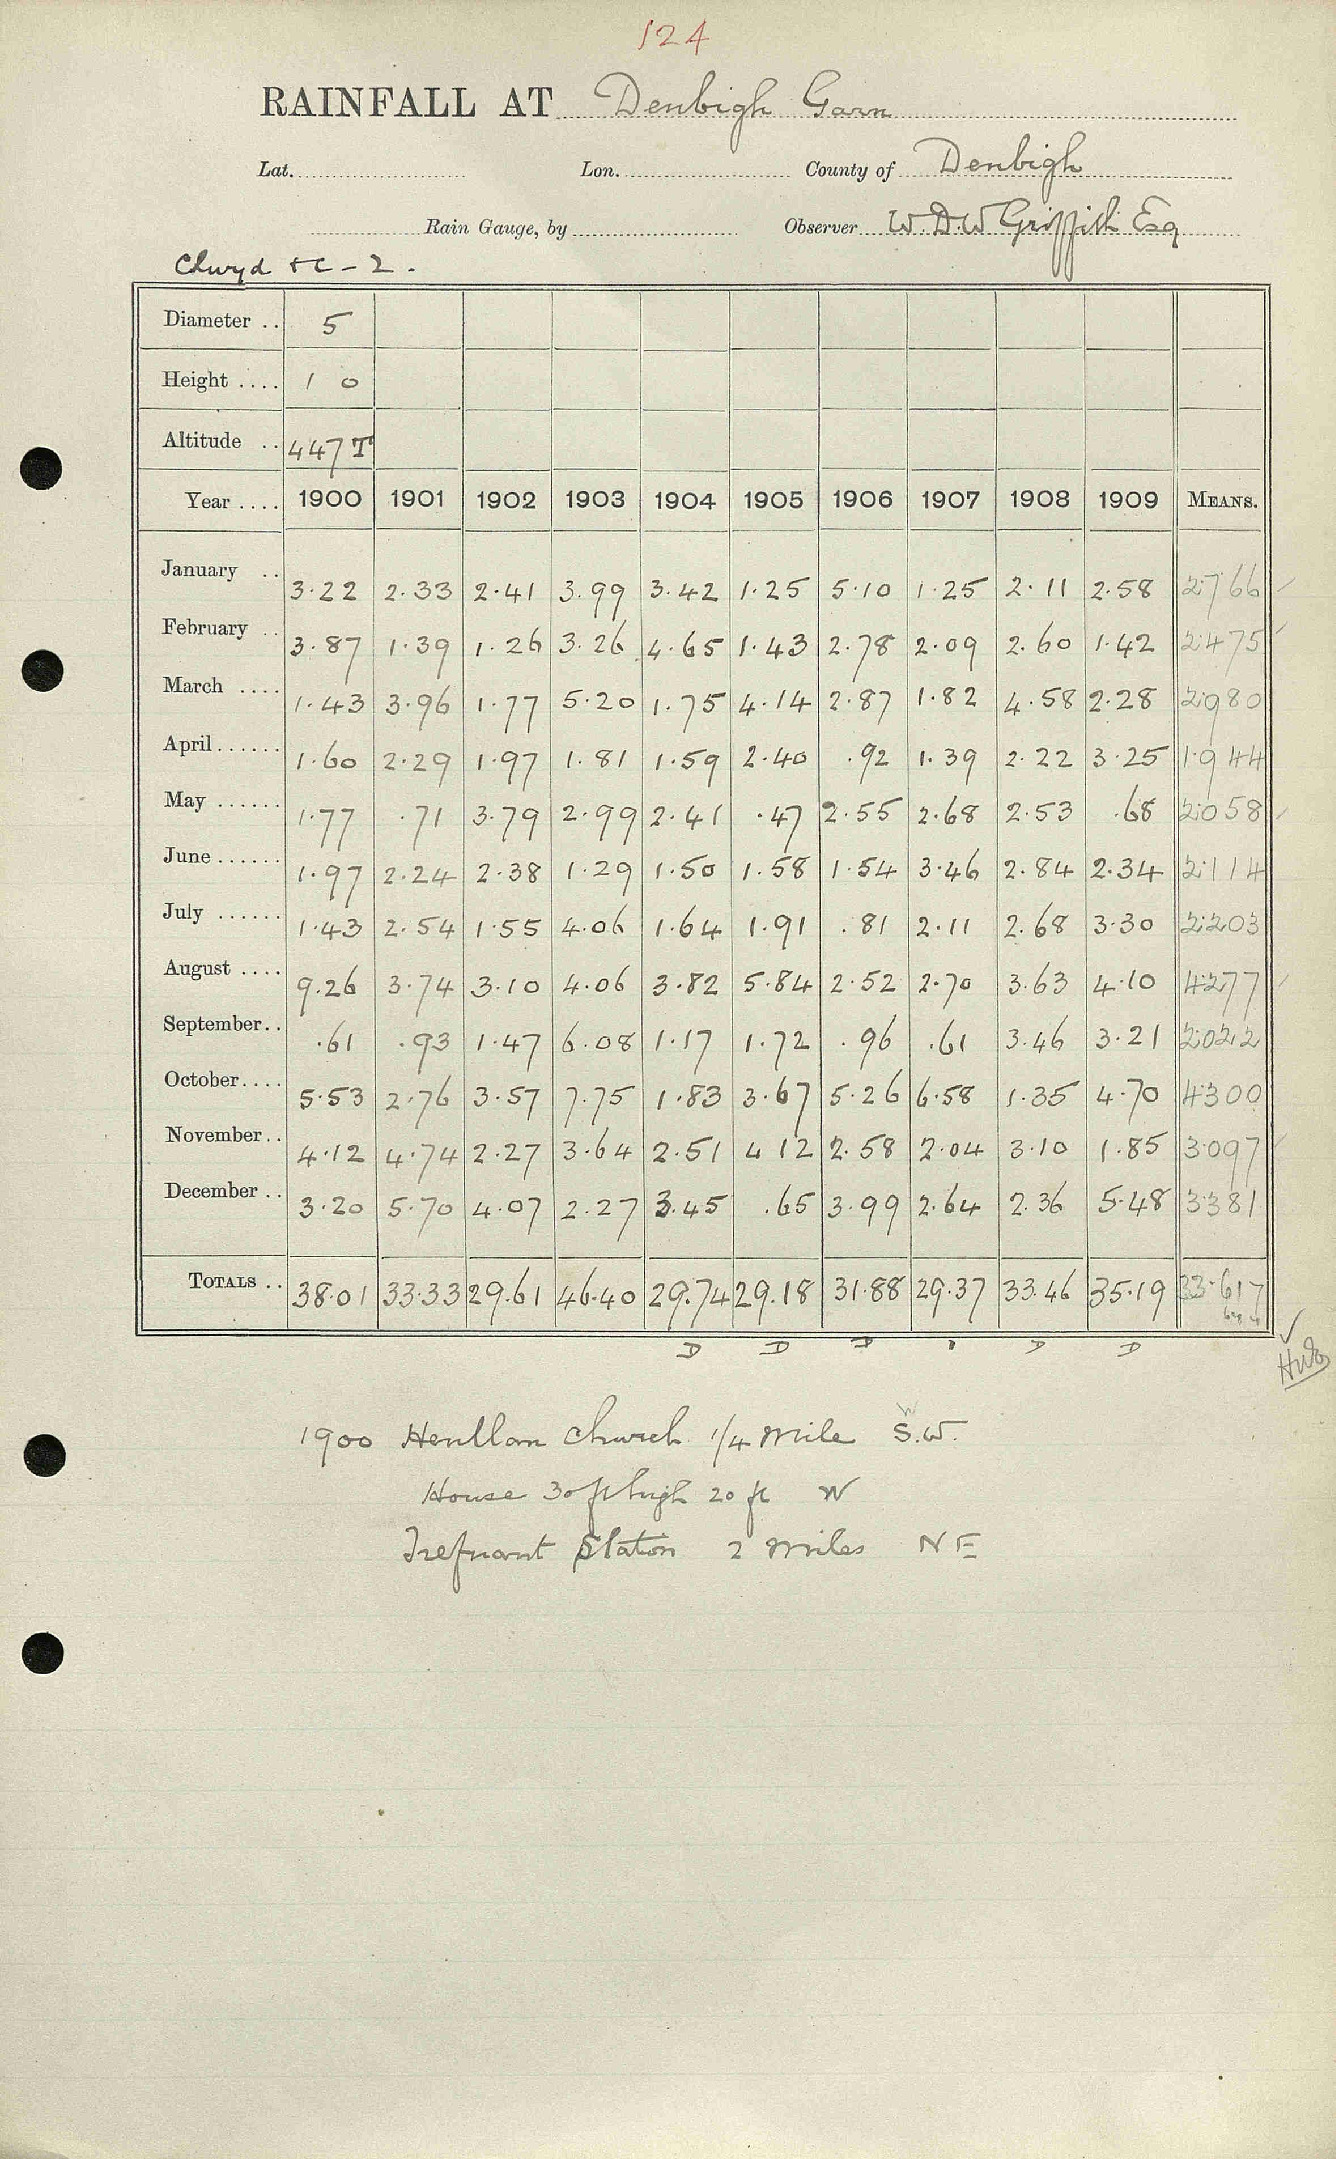 124
RAINFALL AT Denbigh Garn
Lat. Lon. County of Denbigh
Rain Gauge, by Observer W. D. W Griffith Esq
Clwyd &c - 2.
Diameter .. 5
Height .... 1 0
Altitude .. 447 T
Year .... 1900 1901 1902 1903 1904 1905 1906 1907 1908 1909 MEANS.
January .. 3.22 2.33 2.41 3.99 3.42 1.25 5.10 1.25 2.11 2.58 2.766
February .. 3.87 1.39 1.26 3.26 4.65 1.43 2.78 2.09 2.60 1.42 2.475
March .... 1.43 3.96 1.77 5.20 1.75 4.14 2.87 1.82 4.58 2.28 2.980
April ...... 1.60 2.29 1.97 1.81 1.59 2.40 .92 1.39 2.22 3.25 1.944
May ...... 1.77 .71 3.79 2.99 2.41 .47 2.55 2.68 2.53 .68 2.058
June ...... 1.97 2.24 2.38 1.29 1.50 1.58 1.54 3.46 2.84 2.34 2.114
July ...... 1.43 2.54 1.55 4.06 1.64 1.91 .81 2.11 2.68 3.30 2.203
August .... 9.26 3.74 3.10 4.06 3.82 5.84 2.52 2.70 3.63 4.10 4.277
September .. .61 .93 1.47 6.08 1.17 1.72 .96 .61 3.46 3.21 2.022
October .... 5.53 2.76 3.57 7.75 1.83 3.67 5.26 6.58 1.35 4.70 4.300
November .. 4.12 4.74 2.27 3.64 2.51 4 12 2.58 2.04 3.10 1.85 3.097
December .. 3.20 5.70 4.07 2.27 3.45 .65 3.99 2.64 2.36 5.48 3.381
TOTALS .. 38.01 33.33 29.61 46.40 29.74 29.18 31.88 29.37 33.46 35.19 33.617
D D D D D
1900 Henllan Church 1/4 mile S.W.
House 30 ft high 20 ft W
Trefnant Station 2 miles NE